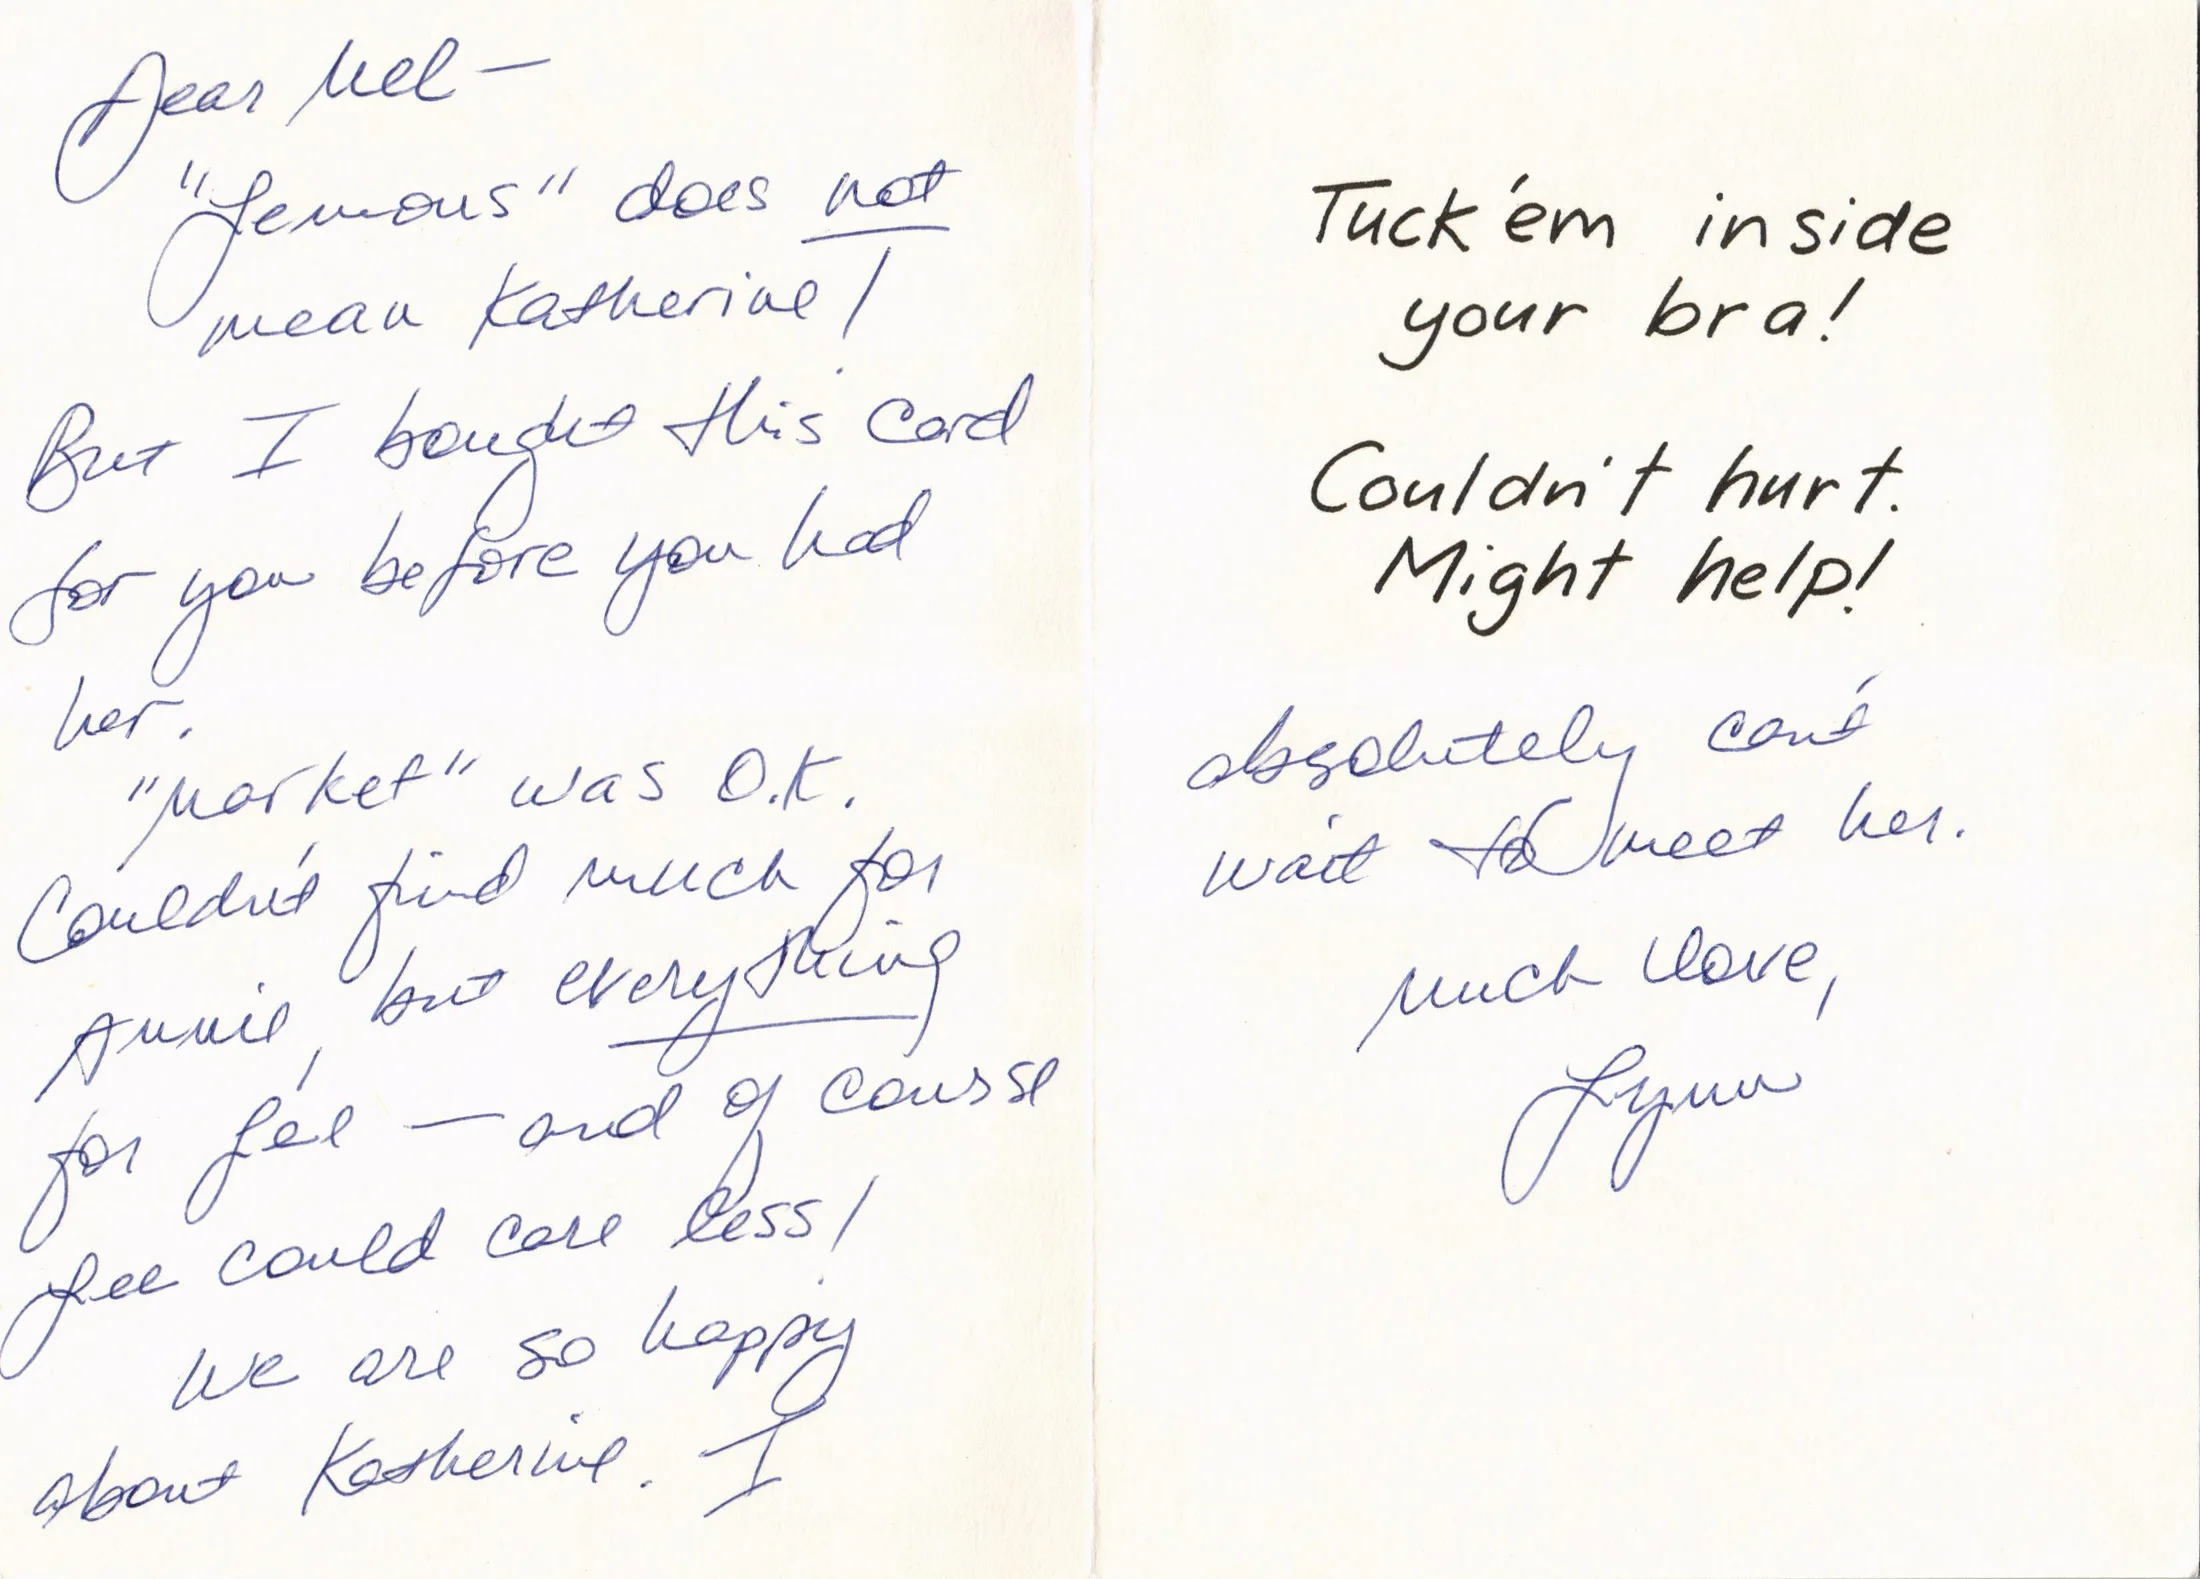 Dear Mel —
"Lemons" does not
mean Katherine!
But I bought this card
for you before you had
her.
"Market" was O.K.
Couldn't find much for
Annie, but everything
for Lee — and of course
Lee could care less!
We are so happy
about Katherine. I
Tuck 'em inside
your bra!
Couldn't hurt.
Might help!
absolutely can't
wait to meet her.
Much Love,
Lynn